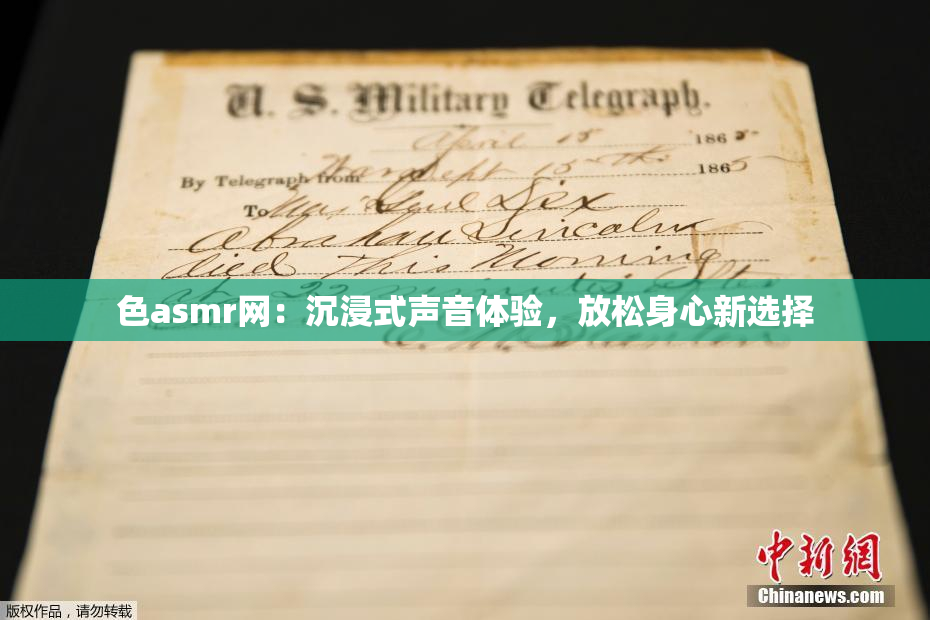 U. S. Military Telegraph.
April 15 1865
By Telegraph from War Dept 15th 1865
To Maj Genl Dix
Abraham Lincoln
died This Morning
at 22 minutes after
色asmr网：沉浸式声音体验，放松身心新选择
E. M. Stanton
中新网
Chinanews.com
版权作品，请勿转载